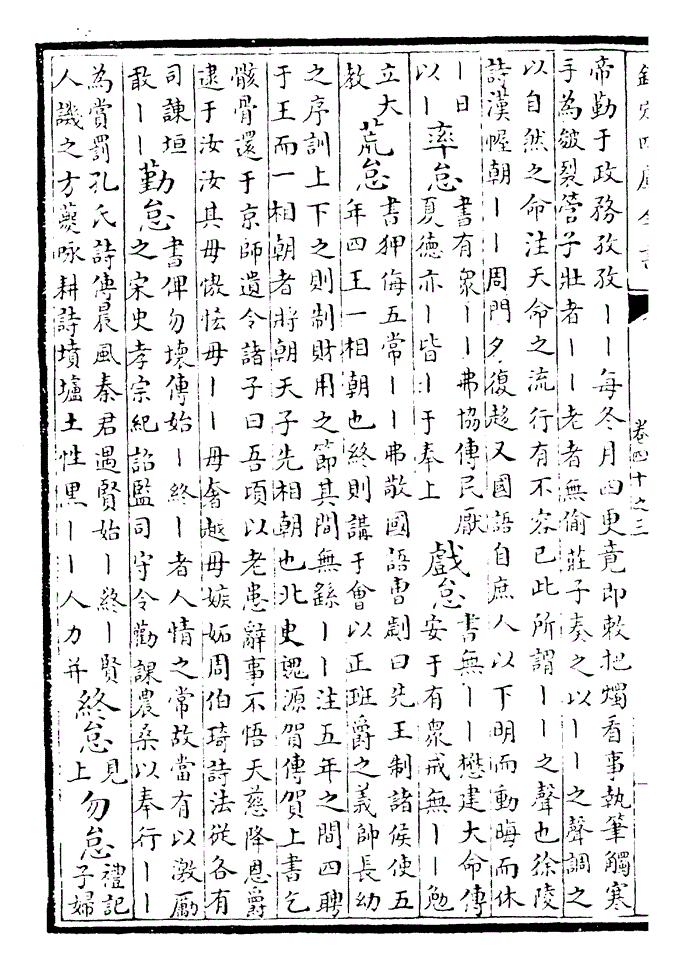 欽定四庫全書
卷四十之三
帝勤于政務孜孜丨丨每冬月四更竟即敕把燭看事執筆觸寒
手為皴裂管子壯者丨丨老者無偷莊子奏之以丨丨之聲調之
以自然之命注天命之流行有不容已此所謂丨丨之聲也徐陵
詩漢幄朝丨丨周門夕復趍又國語自庶人以下明而動晦而休
丨日
以丨
率怠
書有眾丨丨弗協傳民厭
夏德亦丨皆丨于奉上
戲怠
書無丨丨懋建大命傳
安于有眾戒無丨丨勉
立大
教
荒怠
書狎侮五常丨丨弗敬國語曹劌曰先王制諸侯使五
年四王一相朝也終則講于會以正班爵之義師長幼
之序訓上下之則制財用之節其間無繇丨丨注五年之間四聘
于王而一相朝者將朝天子先相朝也北史魏源賀傳賀上書乞
骸骨還于京師遺令諸子曰吾頃以老患辭事不悟天慈降恩爵
逮于汝汝其毋慠怯毋丨丨毋奢越毋嫉妬周伯琦詩法從各有
司諫垣
敢丨丨
勤怠
書俾勿壞傳始丨終丨者人情之常故當有以激厲
之宋史孝宗紀詔監司守令勸課農桑以奉行丨丨
為賞罰孔氏詩傳晨風秦君遇賢始丨終丨賢
人譏之方夔咏耕詩墳壚土性黑丨丨人力并
終怠
見
上
勿怠
禮記
子婦